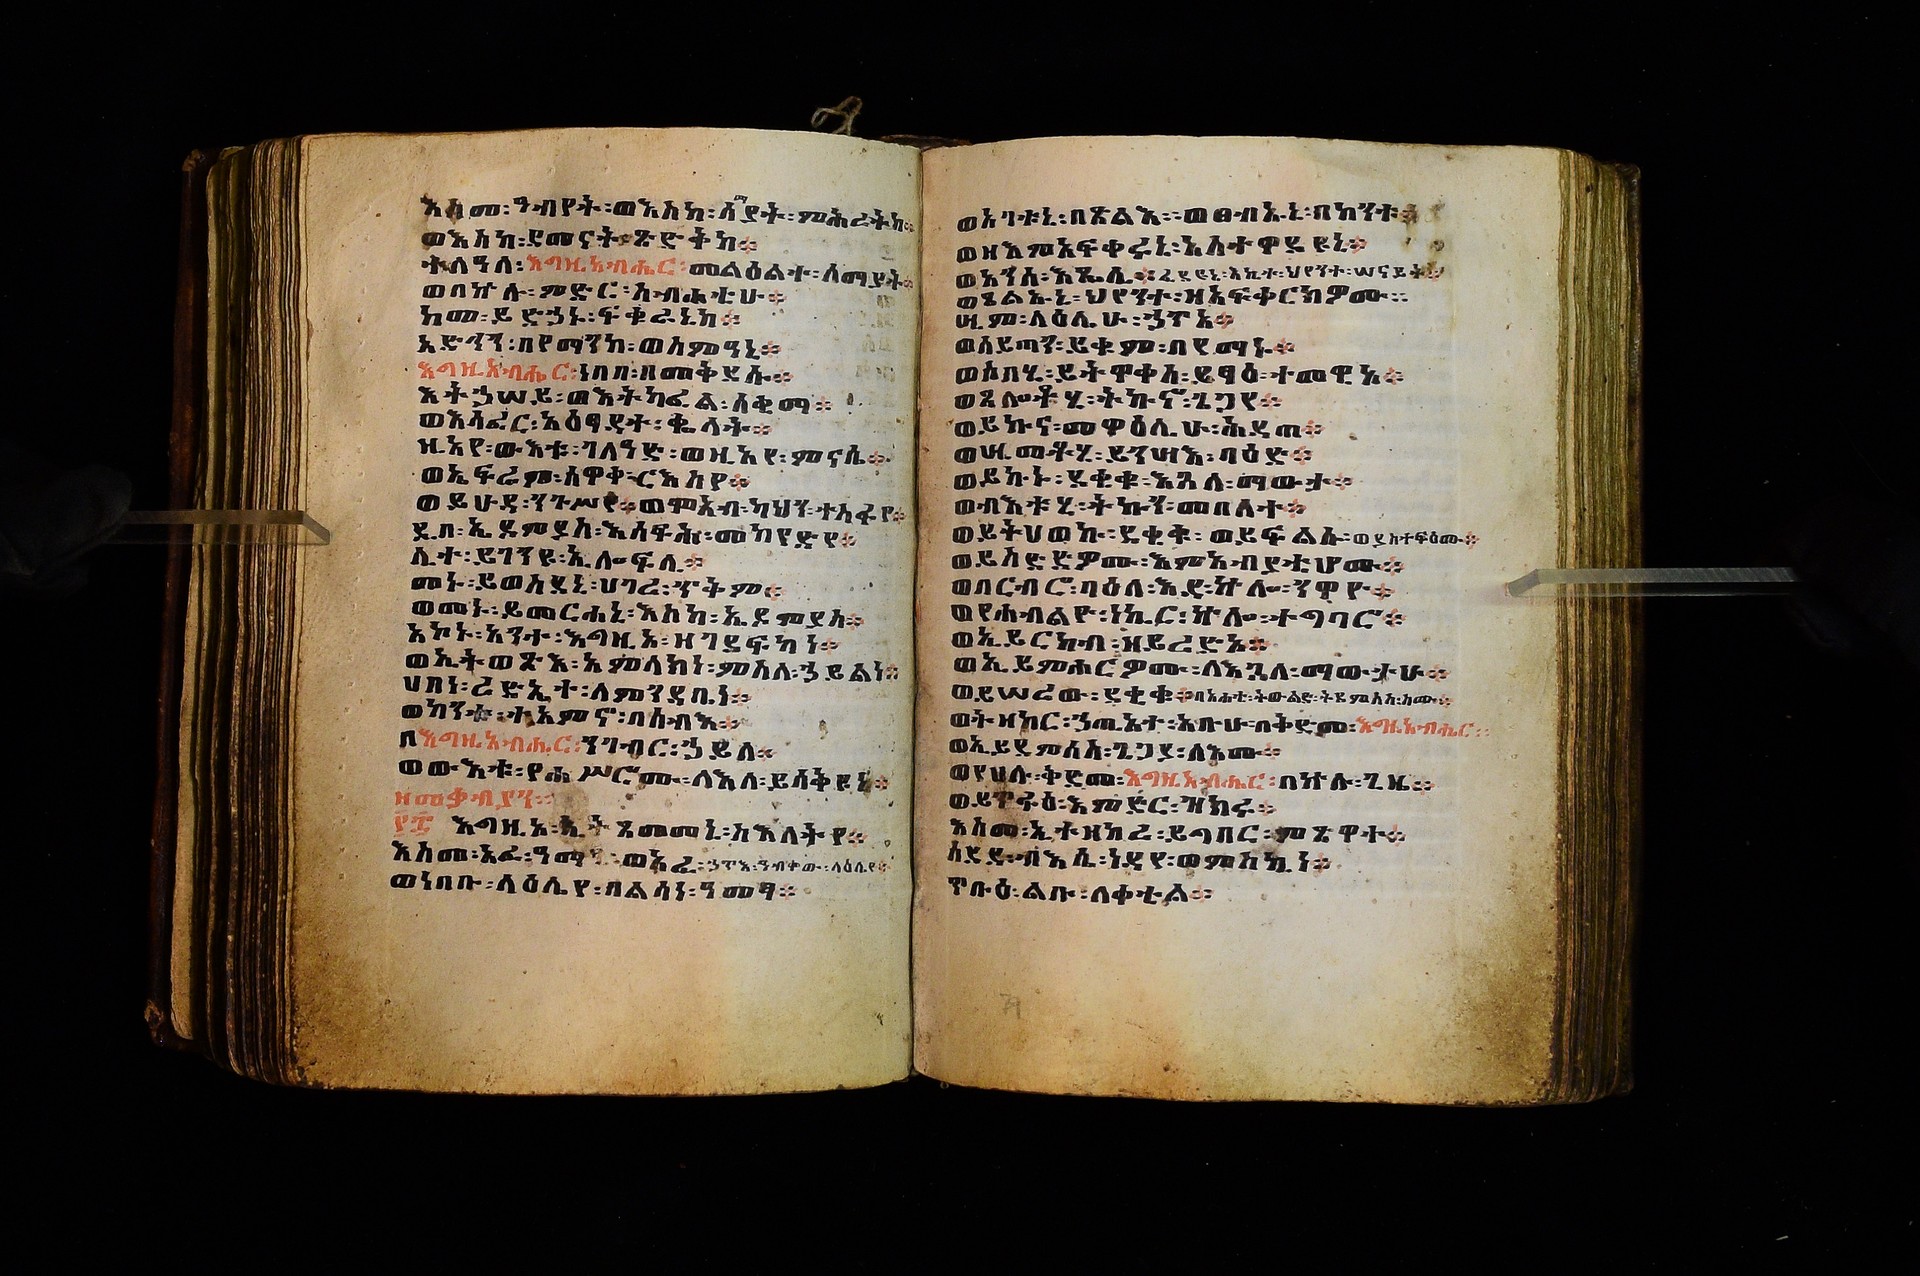 እስመ፡ ዓብየት፡ ወእስከ፡ ሰማያት፡ ምሕረትከ።
ወእስከ፡ ደመናት፡ ጽድቅከ።
ተለዓለ፡ እግዚአብሔር፡ መልዕልተ፡ ሰማያት።
ወበኵሉ፡ ምድር፡ ስብሐቲሁ።
ከመ፡ ይድኃኑ፡ ፍቁራኒከ።
አድኅን፡ በየማንከ፡ ወስምዓኒ።
እግዚአብሔር፡ ነበበ፡ በመቅደሱ።
እትኃሠይ፡ ወእትካፈል፡ ሰቂማ።
ወእሳፈር፡ አዕፃደተ፡ ቄላት።
ዚአየ፡ ውእቱ፡ ገለዓድ፡ ወዚአየ፡ ምናሴ።
ወኤፍሬም፡ ጸዋቀ፡ ርእስየ።
ወይሁዳ፡ ንጉሥየ። ወሞአብ፡ ካህን፡ ተስፋየ።
ዲበ፡ ኤዶምያስ፡ እሰፍሕ፡ መካየድየ።
ሊተ፡ ይገንዩ፡ ኢሎፍሊ።
መኑ፡ ይወስደኒ፡ ሀገረ፡ ጥቅም።
ወመኑ፡ ይመርሐኒ፡ እስከ፡ ኤዶምያስ።
አኮኑ፡ አንተ፡ እግዚኦ፡ ዘገደፍከነ።
ወኢትወጽእ፡ አምላክነ፡ ምስለ፡ ኃይልነ።
ሀበነ፡ ረድኤተ፡ ለምንዳቤነ።
ወከንቱ፡ ተአምኖ፡ በሰብእ።
በእግዚአብሔር፡ ንገብር፡ ኃይለ።
ወውእቱ፡ የሐሥሮሙ፡ ለእለ፡ ይሣቅዩነ።
ዘመቃብያን።
፻፰ እግዚኦ፡ ኢትጸመመኒ፡ ስእለትየ።
እስመ፡ አፈ፡ ዓማፂ፡ ወአፈ፡ ኃጥእ፡ ዓብቀወ፡ ላዕሌየ።
ወነበቡ፡ ላዕሌየ፡ በልሳነ፡ ዓመፃ።
ወአገቱኒ፡ በጽልእ። ወፀብኡኒ፡ በከንቱ።
ወዘእምአፍቀሩኒ፡ አስተዋደዩኒ።
ወአንሰ፡ እጼሊ። ፈደዩኒ፡ እኪተ፡ ህየንተ፡ ሠናይት።
ወጸልኡኒ፡ ህየንተ፡ ዘአፍቀርክዎሙ።
ሢም፡ ላዕሌሁ፡ ኃጥአ።
ወሰይጣን፡ ይቁም፡ በየማኑ።
ወሶበሂ፡ ይትዋቀስ፡ ይፃዕ፡ ተመዊኦ።
ወጸሎቶሂ፡ ትኩኖ፡ ጌጋየ።
ወይኩና፡ መዋዕሊሁ፡ ሕዳጠ።
ወሢመቶሂ፡ ይንሣእ፡ ባዕድ።
ወይኩኑ፡ ደቂቁ፡ እጓለ፡ ማውታ።
ወብእቱሂ፡ ትኩን፡ መበለተ።
ወይትሀወኩ፡ ደቂቁ፡ ወይፍልሱ፡ ወያስተፍዕሙ።
ወይስድድዎሙ፡ እምአብያቲሆሙ።
ወበርብሮ፡ ባዕለ፡ እዳ፡ ኵሎ፡ ንዋዮ።
ወየሐብልዮ፡ ነኪር፡ ኵሎ፡ ተግባሮ።
ወኢይርከብ፡ ዘይረድኦ።
ወኢይምሐርዎሙ፡ ለእጓለ፡ ማውታሁ።
ወይሠረው፡ ደቂቁ። በአሐቲ፡ ትውልድ፡ ትደምሰስ፡ ስሙ።
ወትዘከር፡ ኃጢአተ፡ አቡሁ፡ በቅድመ፡ እግዚአብሔር።
ወኢይደምሰስ፡ ጌጋያ፡ ለእሙ።
ወየሀሉ፡ ቅድመ፡ እግዚአብሔር፡ በኵሉ፡ ጊዜ።
ወይጥፋዕ፡ እምድር፡ ዝክሩ።
እስመ፡ ኢተዘከረ፡ ይግበር፡ ምጽዋተ።
ሰደደ፡ ብእሴ፡ ነዳየ፡ ወምስኪነ።
ጥቡዕ፡ ልቡ፡ ለቀቲል።